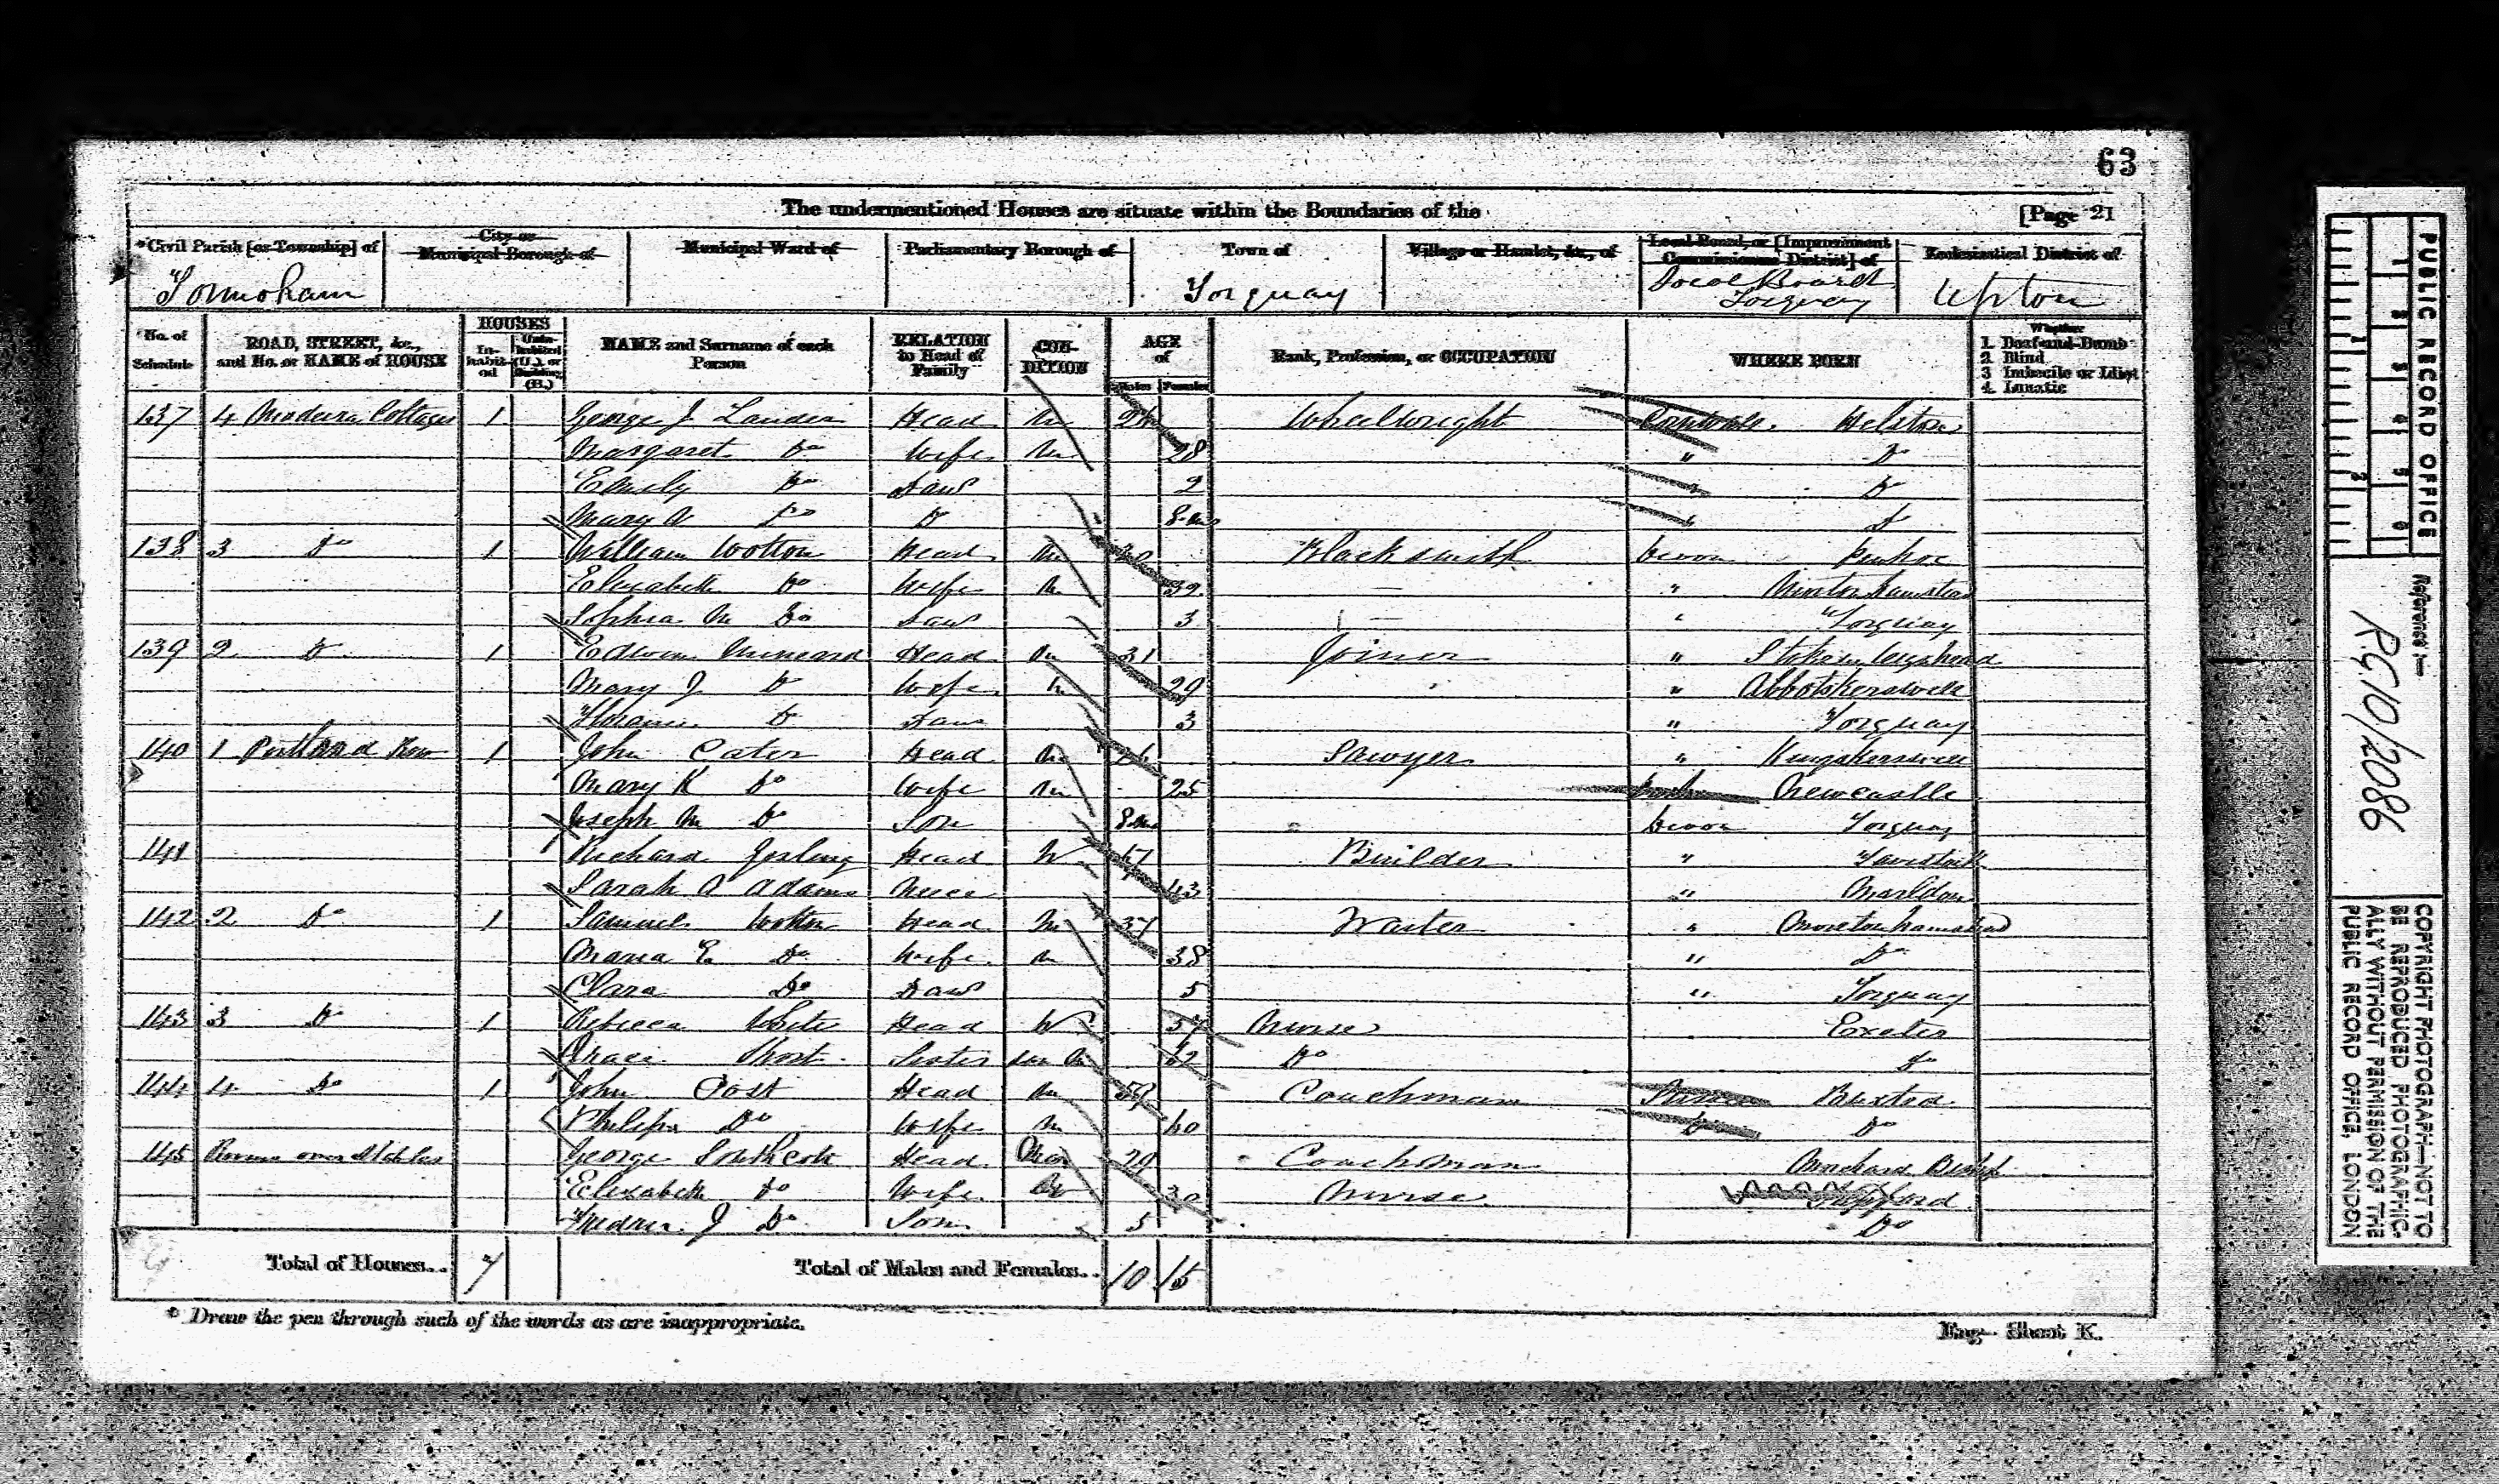 63
The undermentioned Houses are situate within the Boundaries of the
[Page 21
*Civil Parish [or Township] of
City or Municipal Borough of
Municipal Ward of
Parliamentary Borough of
Town of
Village or Hamlet, &c., of
Local Board, or [Improvement Commissioners District] of
Ecclesiastical District of
Tormoham Torquay Local Board Torquay Upton
No. of Schedule
ROAD, STREET, &c., and No. or NAME of HOUSE
HOUSES
Inhabited
Uninhabited (U.), or Building (B.)
NAME and Surname of each Person
RELATION to Head of Family
CONDITION
AGE of
Males Females
Rank, Profession, or OCCUPATION
WHERE BORN
Whether
1. Deaf-and-Dumb
2. Blind
3. Imbecile or Idiot
4. Lunatic
137 4 Madeira Cottages 1 George J Head M Wheelwright Cornwall Helston
Margaret Do Wife M 28 " Do
Emily Do Daur 2 " Do
Mary A Do Do 8 ms " Do
138 3 Do 1 William Wotton Head M Blacksmith Devon Pinhoe
Elizabeth Do Wife M 39 —
Sophia M Do Daur 3 — " Torquay
139 2 Do 1 Edwin Head M 31 Joiner "
Mary J Do Wife M 29 " Abbotskerswell
Florance Do Daur 3 " Torquay
140 1 Portland Row 1 John Cater Head M Sawyer " Kingskerswell
Mary K Do Wife M 25 Newcastle
Joseph M Do Son 8 ms Devon Torquay
141 Richard Head W Builder " Tavistock
Sarah A Adams Niece 43 " Marldon
142 2 Do 1 Samuel Wotton Head M 37 Waiter " Moretonhamstead
Maria E Do Wife M 38 " Do
Clara Do Daur 5 " Torquay
143 3 Do 1 Rebecca White Head W 57 Nurse Exeter
Grace Sister Un M 62 Do Do
144 4 Do 1 John Post Head M Coachman Buxted
Do Wife M 60 Do Do
145 Rooms over Stables George Southcott Head Mar 29 Coachman Morchard Bishop
Elizabeth Do Wife 30 Nurse
J Do Son 5 Do
Total of Houses.. 7
Total of Males and Females.. 10 15
* Draw the pen through such of the words as are inappropriate.
Eng.- Sheet K.
PUBLIC RECORD OFFICE
Reference:-
RG10/2086
COPYRIGHT PHOTOGRAPH—NOT TO
BE REPRODUCED PHOTOGRAPHIC-
ALLY WITHOUT PERMISSION OF THE
PUBLIC RECORD OFFICE, LONDON